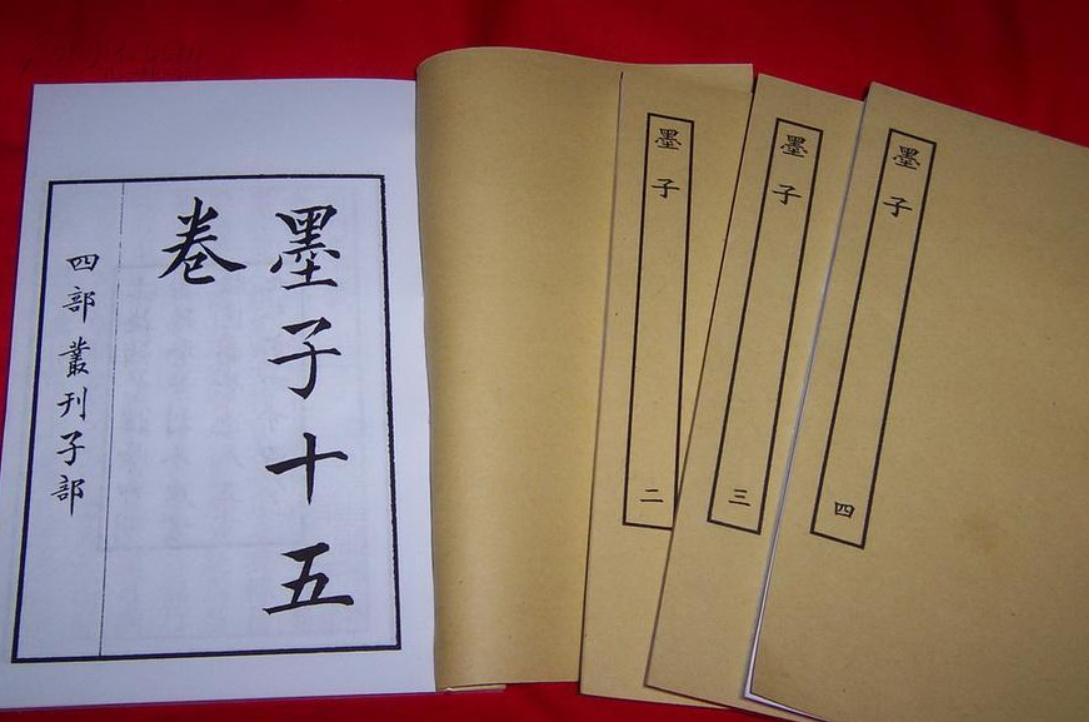 墨子十五
卷
四部叢刊子部
墨子 二
墨子 三
墨子 四